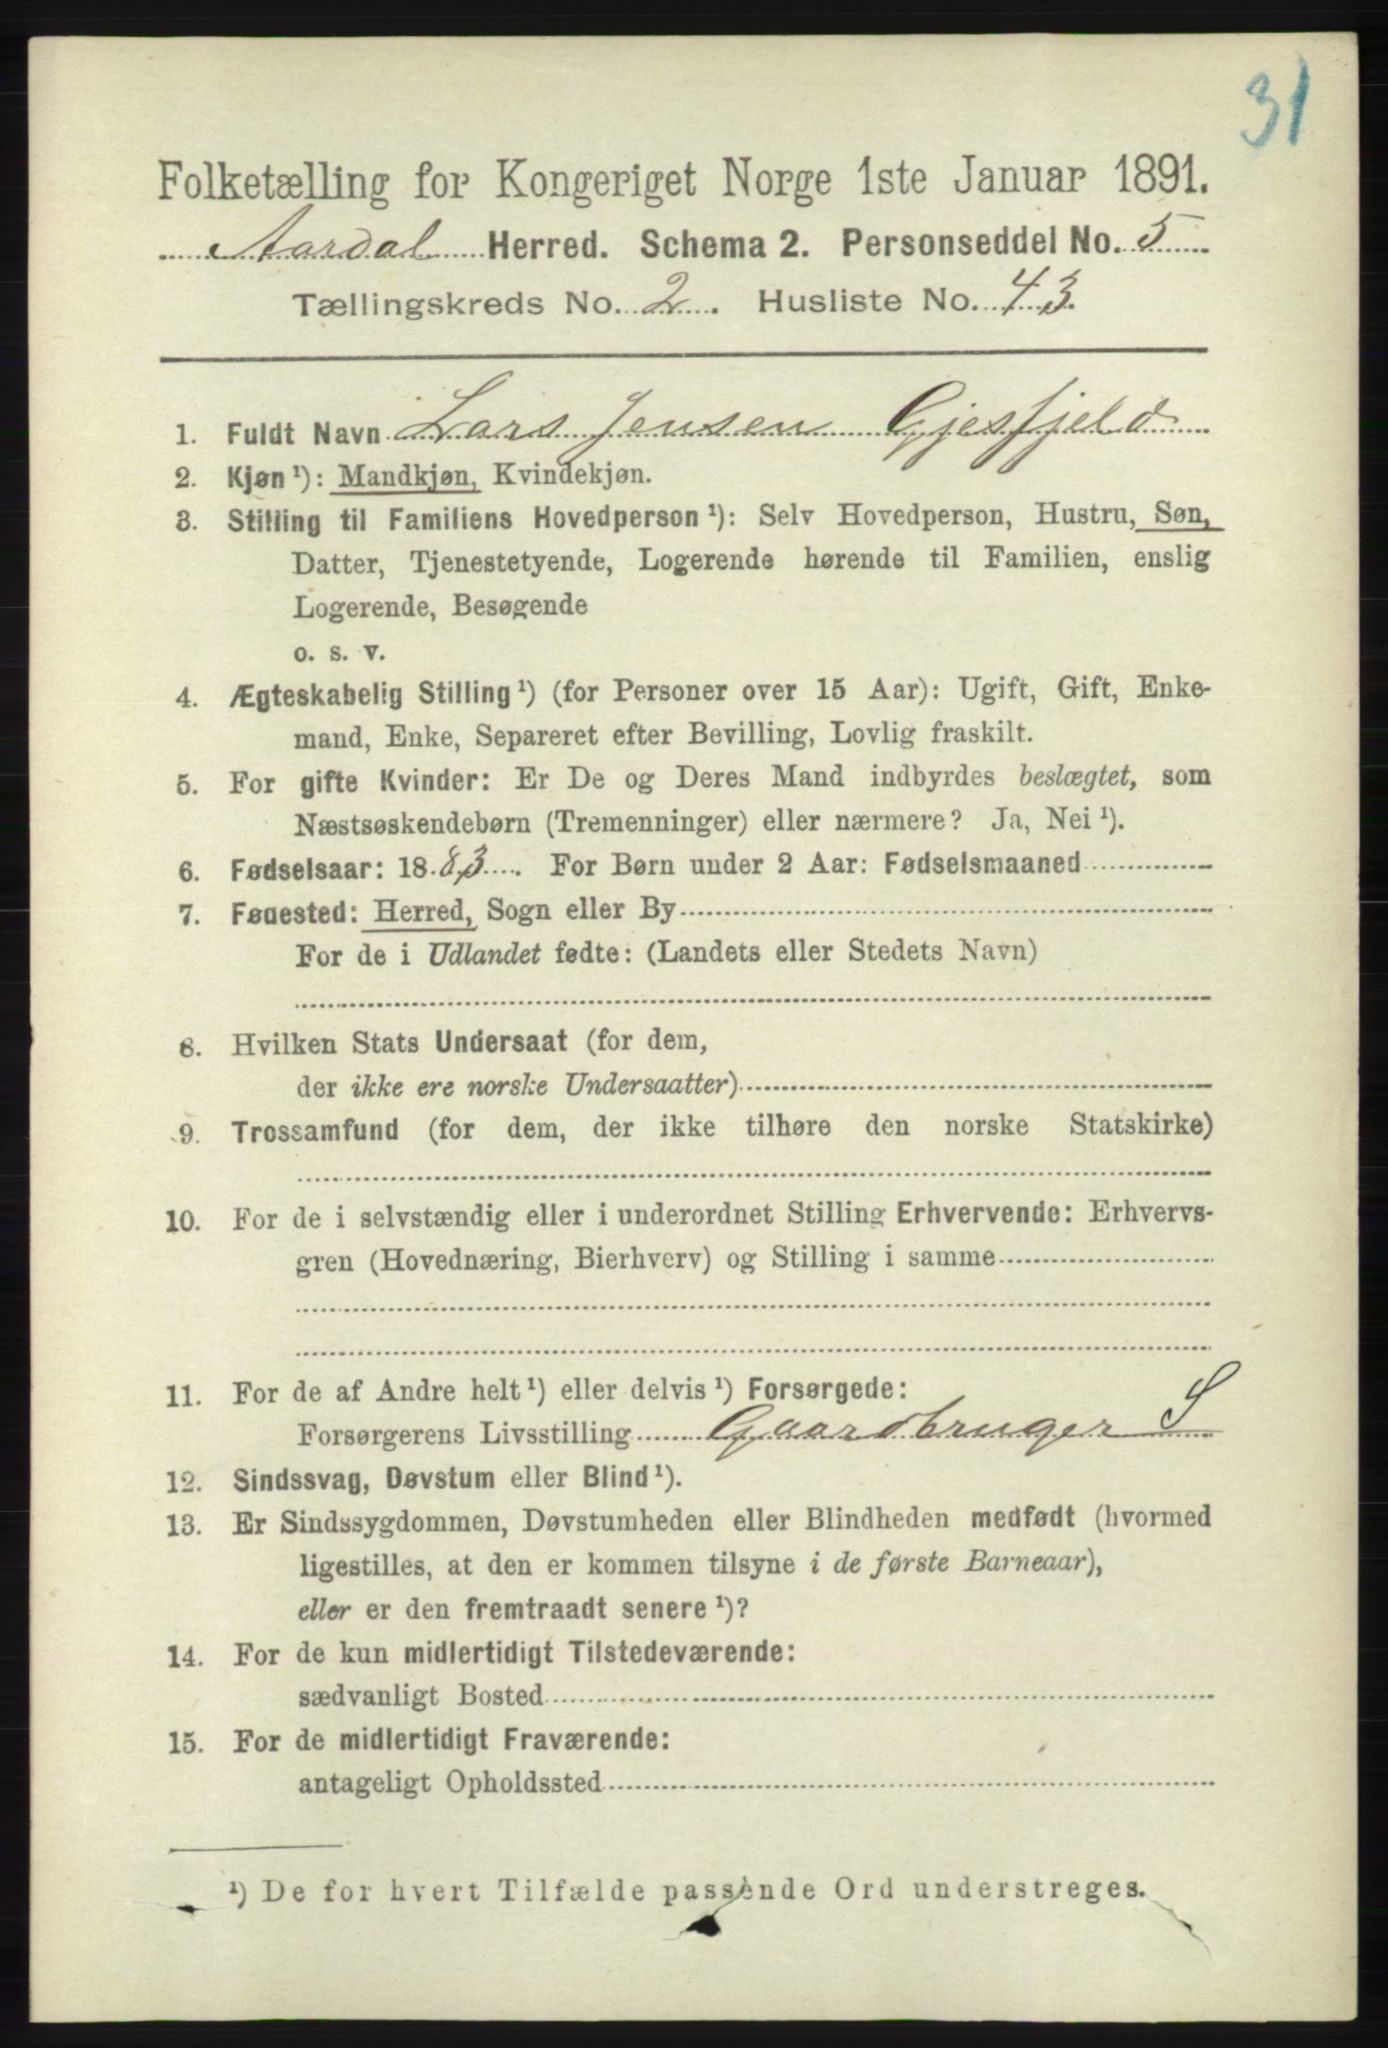 31
Folketælling for Kongeriget Norge 1ste Januar 1891.
Aardal Herred. Schema 2. Personseddel No. 5
Tællingskreds No. 2. Husliste No. 43.
1. Fuldt Navn Lars Jensen Gjesfjeld
2. Kjøn¹): Mandkjøn, Kvindekjøn.
3. Stilling til Familiens Hovedperson¹): Selv Hovedperson, Hustru, Søn,
Datter, Tjenestetyende, Logerende hørende til Familien, enslig
Logerende, Besøgende
o. s. v.
4. Ægteskabelig Stilling¹) (for Personer over 15 Aar): Ugift, Gift, Enke-
mand, Enke, Separeret efter Bevilling, Lovlig fraskilt.
5. For gifte Kvinder: Er De og Deres Mand indbyrdes beslægtet, som
Næstsøskendebørn (Tremenninger) eller nærmere? Ja, Nei¹).
6. Fødselsaar: 1883. For Børn under 2 Aar: Fødselsmaaned
7. Fødested: Herred, Sogn eller By
For de i Udlandet fødte: (Landets eller Stedets Navn)
8. Hvilken Stats Undersaat (for dem,
der ikke ere norske Undersaatter)
9. Trossamfund (for dem, der ikke tilhøre den norske Statskirke)
10. For de i selvstændig eller i underordnet Stilling Erhvervende: Erhvervs-
gren (Hovednæring, Bierhverv) og Stilling i samme
11. For de af Andre helt¹) eller delvis¹) Forsørgede:
Forsørgerens Livsstilling Gaardbruger S
12. Sindssvag, Døvstum eller Blind¹).
13. Er Sindssygdommen, Døvstumheden eller Blindheden medfødt (hvormed
ligestilles, at den er kommen tilsyne i de første Barneaar),
eller er den fremtraadt senere¹)?
14. For de kun midlertidigt Tilstedeværende:
sædvanligt Bosted
15. For de midlertidigt Fraværende:
antageligt Opholdssted
¹) De for hvert Tilfælde passende Ord understreges.